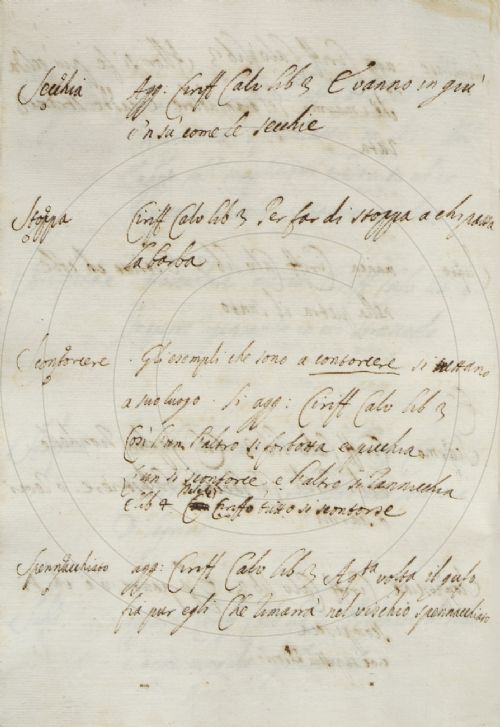 Secchia Agg: Ciriff Calv lib 3 E vanno in giu'
e 'n su' come le secchie
Stoppa Ciriff Calv lib 3 Per far di stoppa a chi passa
la barba
Scontorcere . Gli esempli che sono a contorcere si mettano
a suo luogo. Si agg: Ciriff Calv lib 3
Così l'un l'altro si forbotta e picchia
L'un si scontorce, e l'altro si rannicchia
E lib 4 Ciriffo tutto si scontorse
Spennacchiato agg: Ciriff Calv lib 3 Ag.ta volta il gufo
fia pur egli Che rimarrà nel vischio spennacchiato